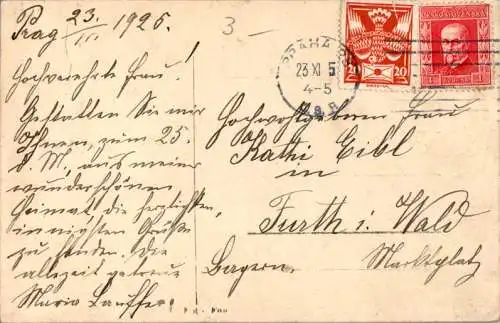 Prag 23./III. 1925.
3 –
Hochverehrte Frau!
Gestatten Sie mir
Ihnen, zum 25.
d. M., aus meiner
wunderschönen
Heimat, die herzlichsten,
innigsten Grüße
zu senden. Die
allezeit getreue
Maria
PRAHA
23 XI 5
4-5
20 20
Hochwohlgeboren Frau
Kathi Eibl
in
Furth i. Wald
Bayern. Marktplatz